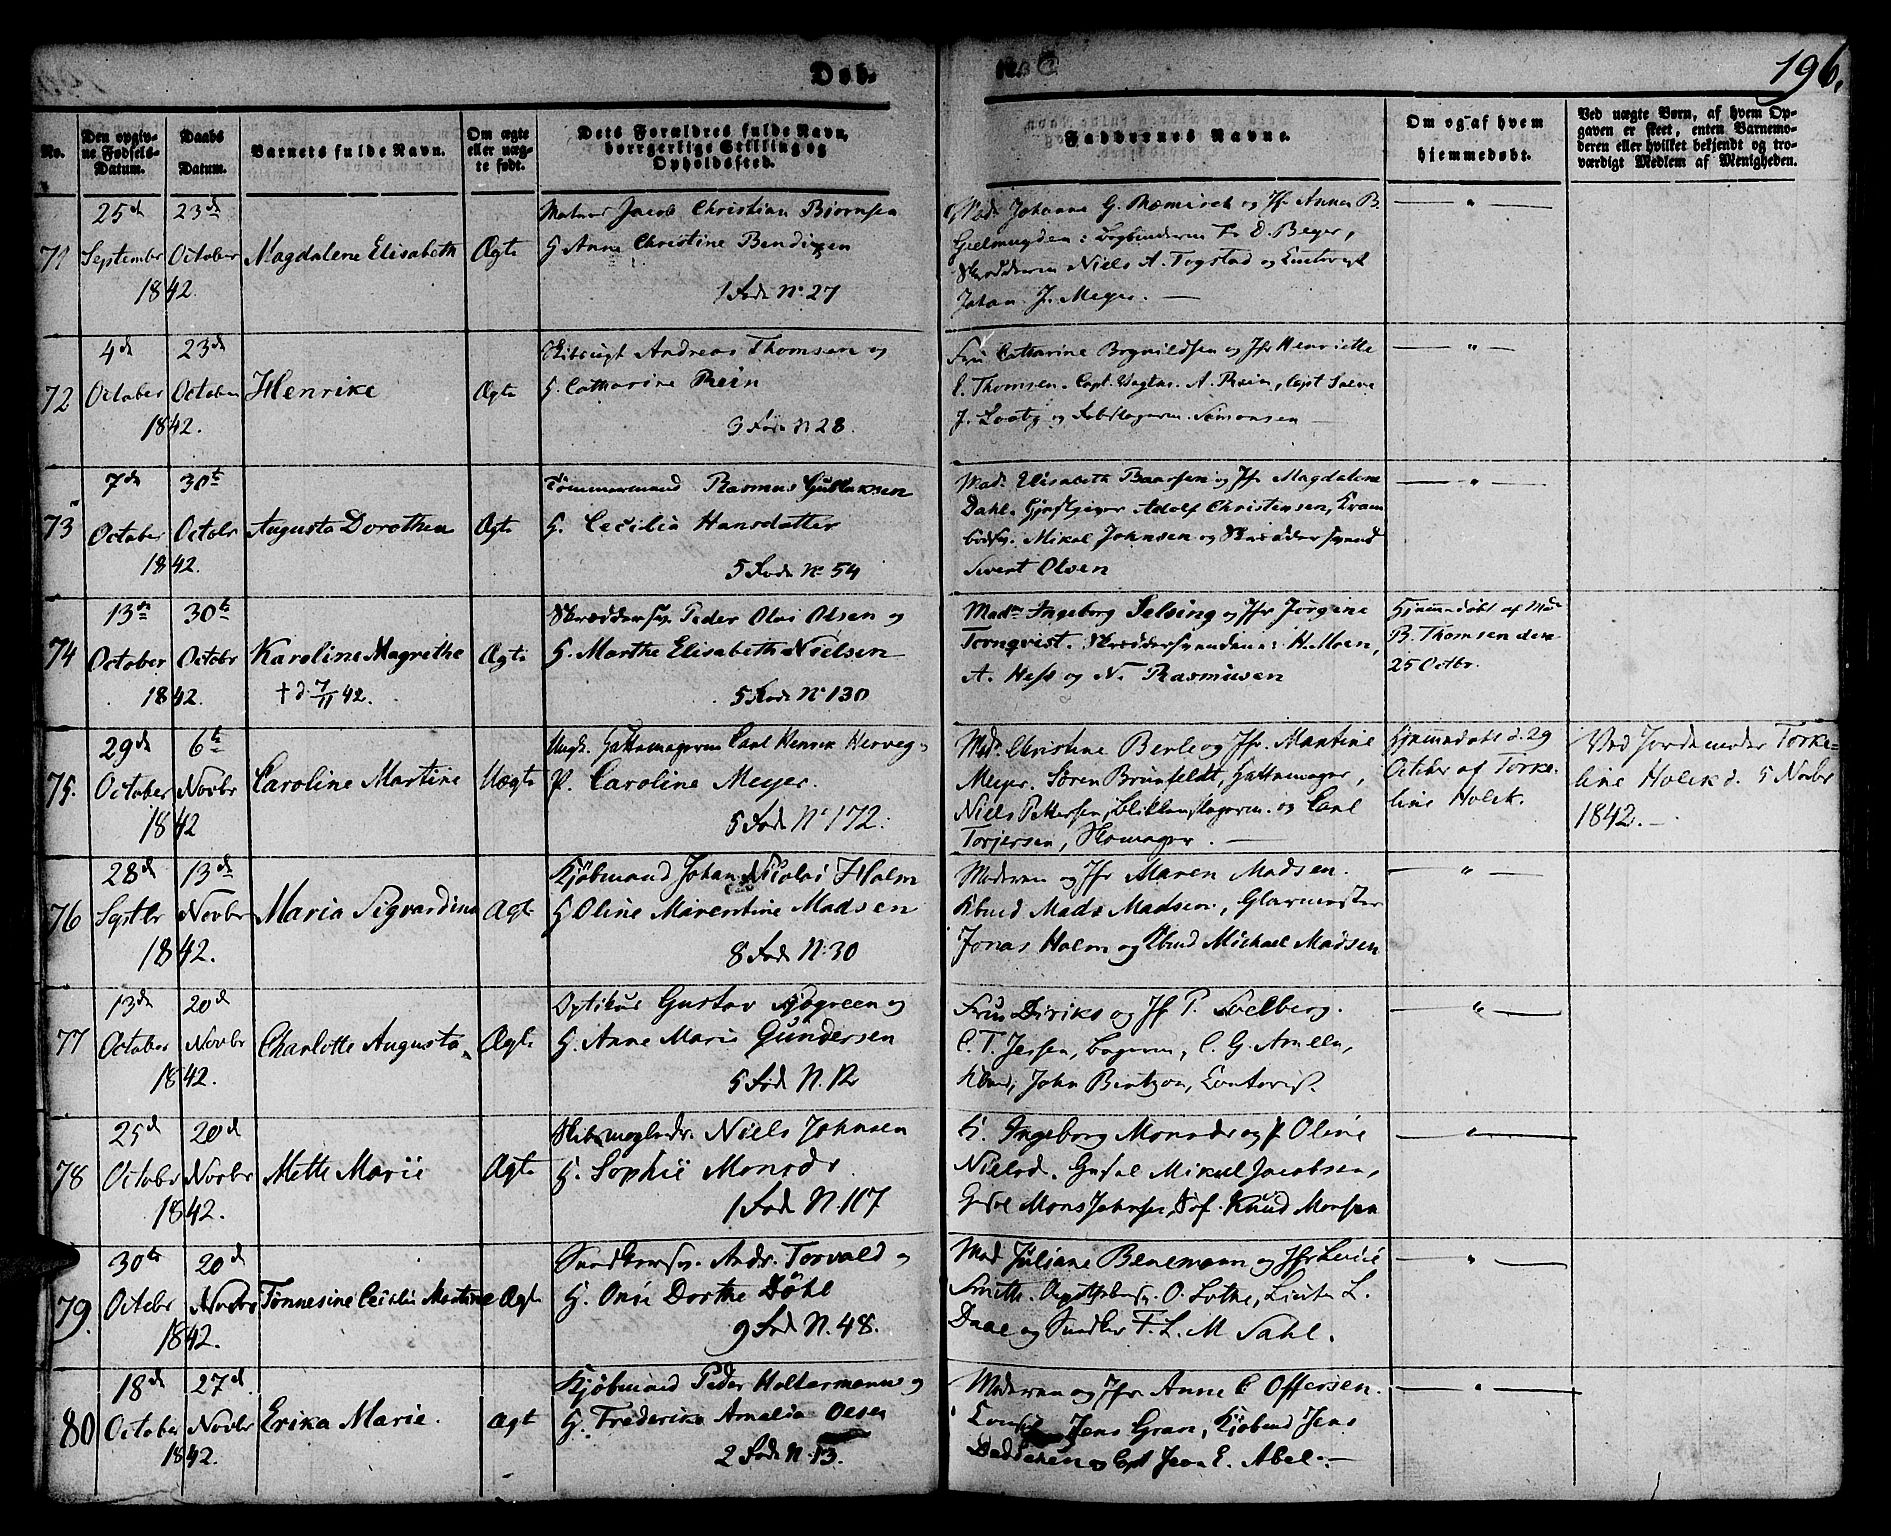 Døb.
196.
No.
Den opgiv-
ne Fødsels-
Datum.
Daabs
Datum.
Barnets fulde Navn.
Om ægte
eller uæg-
te født.
Dets Forældres fulde Navn,
borgerlige Stilling og
Opholdssted.
Faddernes Navne.
Om og af hvem
hjemmedøbt.
Ved uægte Børn, af hvem Op-
gaven er skeet, enten Barnemo-
deren eller hvilket bekjendt og tro-
værdigt Medlem af Menigheden.
71
25d September 1842
23de October 1842.
Magdalene Elisabeth
Ægte
Jacob Christian Biørnsen
H. Anne Christine Bendixen
1 Fode No 27
Mad. Johanne G. og Jfr Anna B.
Bogbinderen D. Beyer,
Niels A. Togstad og
Johan J. Meyer. —
— " —
72
4de October 1842.
23de October 1842.
Henrike
Ægte
Andreas Thomsen og
H. Catharine Rein
3 Fode N 28
Fru Catharine Brynildsen og Jfr Henriette
E. Thomsen. Capt. A. Rein, Capt
J. og Simonsen
— " —
73
7de October 1842.
30te Octobr 1842.
Augusta Dorothea
Ægte
Tømmermand Rasmus Gullaksen
H. Cecilia Hansdatter
5 Fode No 54
Mad. Elisabeth Baarsen og Jfr Magdalene
Dahl. Gjæstgiver Adolf Christensen, Kram
bodsv. Mikal Johnsen og Skræddersvend
Sivert Olsen
— " —
74
13de October 1842.
30te Octobr 1842.
Karoline Magrethe
† d. 7/11 42.
Ægte
Skræddersv. Peder Olai Olsen og
H. Marthe Elisabeth Nielsen
5 Rode No 130
Madm Ingeborg Selsing og Jfr Jørgine
Tornqvist. Skræddersvendene: H. Moen,
A. Hess og N. Rasmusen
Hjemmdøbt af
B. Thomsen den
25 Octbr.
75.
29de October 1842
6te Novbr 1842
Caroline Martine
Uægte
Ungk. Hattemagersv. Carl Henrik Herveg
P. Caroline Meyer.
5 Fode No 172.
Mad. Christine Berle og Jfr. Martine
Meyer. Søren Brunfeldt, Hattemager,
Niels Pettersen, Blikkenslagersv. og Carl
Torjersen, Skomager. —
Hjemmedøbt d. 29
October af Torke-
line Holck.
Ved Jordemoder Torke-
line Holck d. 5 Novbr
1842. —
76
28de Septbr 1842.
13de Novbr 1842.
Maria Sigvardine
Ægte
Kjøbmand Johan Nicolai Holm
H Oline Marentine Madsen
8 Fode N. 30
Moderen og Jfr Maren Madsen.
Kbmd Mads Madsen, Glarmester
Jonas Holm og Kbmd Michael Madsen
— " —
77
13de October 1842.
20d Novbr 1842.
Charlotte Augusta.
Ægte
Optikus Gustav og
H. Anne Marie Gundersen
5 Fod N. 12
Fru Diriks og Jf P. Soelberg.
C. T. Jessen, Bagersv., C. G. Amelln,
Kbmd, John Bentzon, Contorist.
— " —
78
25d October 1842.
20d Novbr 1842.
Mette Marie
Ægte
Skibsmægledr. Niels Johnsen
H. Sophie Monsdr
1 Fode N. 117
H. Ingeborg Monsdr og P. Oline
Nielsd. Mikael Jacobsen,
Mons Johnsen, Knud Monsen
— " —
79.
30te Octobr 1842.
20d Novbr 1842.
Tønnesine Cecilie Martine
Ægte
Andr. Torvald
H. Dorthe Döhl
9 Fode N. 48.
Mad Juliane Benemann og Jfr
Smitts. O. Lothe, L.
Daae og T. L. M Sahl.
— " —
80
18d October 1842.
27d Novbr 1842.
Erika Marie.
Ægt
Kjøbmand Peder Holtermann og
H. Frederike Amalia Olsen
2 Fode N. 13.
Moderen og Jfr Anne C Offersen.
Consul Jens Gran, Kjøbmd Jens
og Capt Jens E. Abel. —
— " —